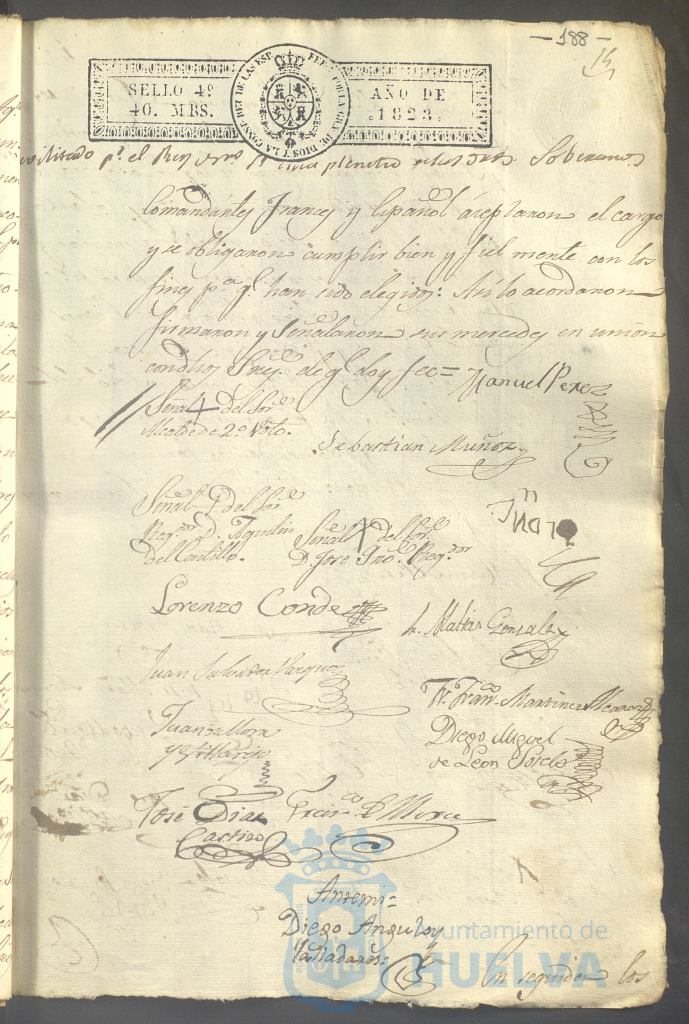 -188-
SELLO 4º
40. MRS.
AÑO DE
.1823.
p.r el Rey Soberanos
Comandantes Frances y Español aceptaron el cargo
y se obligaron cumplir bien y fiel mente con los
fines p.a q.e han sido elegidos: Asi lo acordaron
firmaron y señalaron sus mercedes en union
con dhos Sres. de q.e doy fee=
Manuel Perez
Señal del Sor.
Alcalde de 2º Voto.
Sebastian Muñoz
Señal del Sor.
Reg.or D. Agustin
del Castillo.
Señal del Sor.
D. Jose Reg.or
Lorenzo Conde
Matias Gonzalez
Juan Salvador Vazquez
Fran.co Martinez
Juan de Mora
y Villarejo
Diego Miguel
de Leon Sotelo
José Diaz
Castizo
Fran.co D Mora
Antemi=
Diego Angulo y
Valladares=
En seguida los
Ayuntamiento de
HUELVA